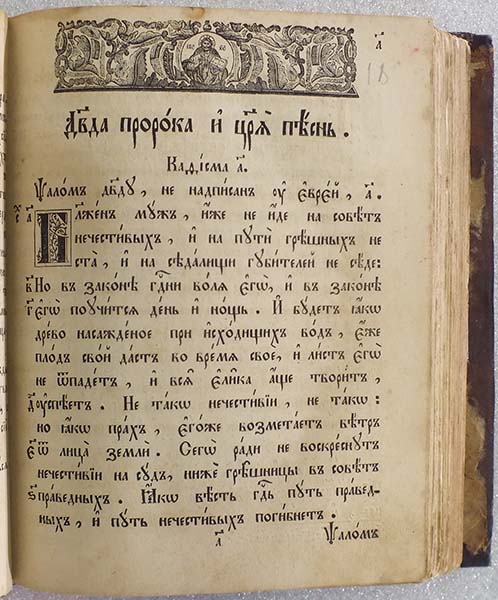 а҃
1а
Дв҃да проро́ка и҆ цр҃ѧ̀ пѣ́снь.
Каѳі́сма а҃.
Ѱало́мъ дв҃ду, не надпи́сан оу҆ є҆врє́й, а҃.
Бл҃же́нъ мꙋ́жъ, и҆́же не и҆́де на совѣ́тъ
нечести́выхъ, и҆ на пꙋтѝ грѣ́шныхъ не
ста̀, и҆ на сѣда́лищи гꙋби́телей не сѣ́де:
в҃ Но въ зако́нѣ гд҃ни во́лѧ є҆гѡ̀, и҆ въ зако́нѣ
г҃ є҆гѡ̀ поꙋчи́тсѧ де́нь и҆ но́щь. И҆ бꙋ́детъ ꙗ҆́кѡ
дре́во насажде́ное при и҆схо́дищихъ во́дъ, є҆́же
пло́дъ сво́й да́стъ во вре́мѧ своѐ, и҆ ли́стъ є҆гѡ̀
не ѿпаде́тъ, и҆ всѧ̑ є҆ли́ка а҆́ще твори́тъ,
д҃ оу҆спѣ́етъ. Не та́кѡ нечести́вїи, не та́кѡ:
но ꙗ҆́кѡ пра́хъ, є҆го́же возмета́етъ вѣ́тръ
є҃ ѿ лица̀ землѝ. Сегѡ̀ ра́ди не воскре́снꙋтъ
нечести́вїи на сꙋ́дъ, нижѐ грѣ́шницы въ совѣ́тъ
ѕ҃ пра́ведныхъ. Ꙗ҆́кѡ вѣ́сть гд҃ь пꙋ́ть пра́вед-
ныхъ, и҆ пꙋ́ть нечести́выхъ поги́бнетъ.
а҃
Ѱало́мъ